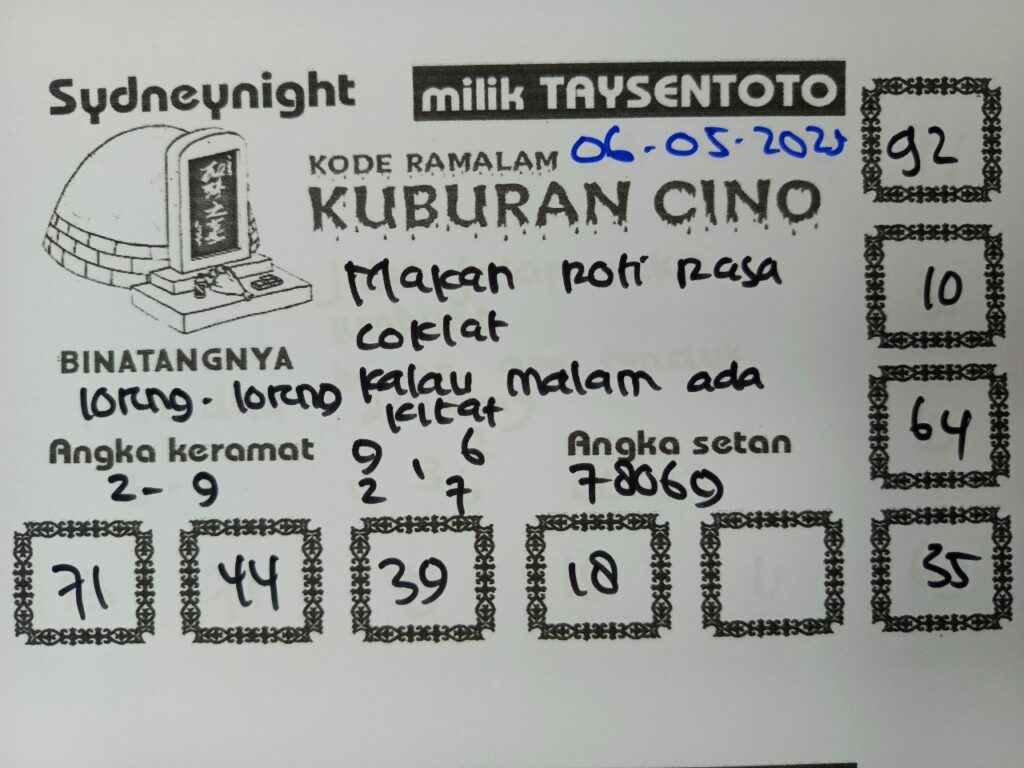 Sydneynight
milik TAYSENTOTO
KODE RAMALAM
06-05-2025
KUBURAN CINO
Makan roti rasa
coklat
kalau malam ada
kilat
BINATANGNYA
loreng-loreng
Angka keramat
2-9
9, 6
2 7
Angka setan
78069
92
10
64
35
71
44
39
18